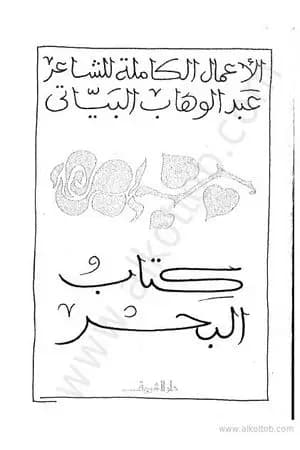 الأعمال الكاملة للشاعر
عبد الوهاب البيّاتي
كتاب
البحر
www.alkottob.com
www.alkottob.com